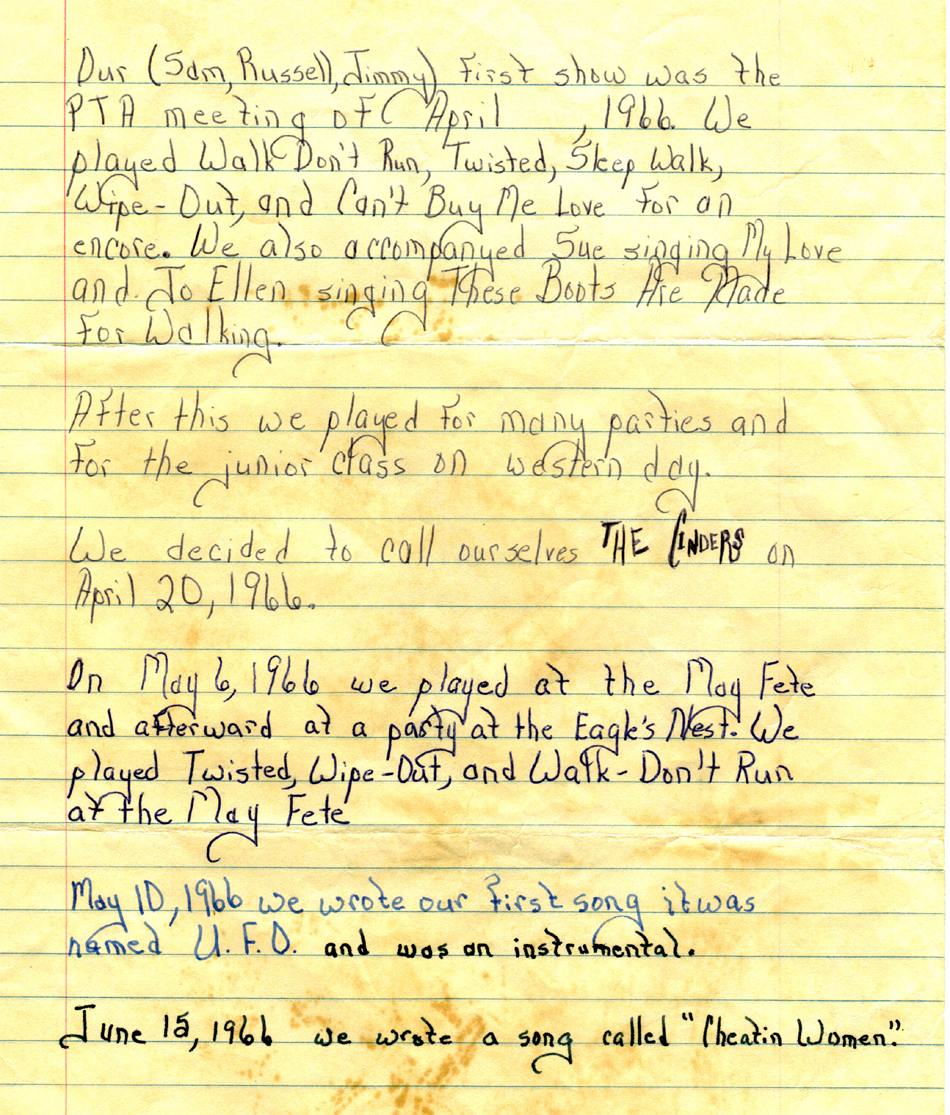 Our (Sam, Russell, Jimmy) first show was the
PTA meeting of April , 1966. We
played Walk Don't Run, Twisted, Sleep Walk,
Wipe-Out, and Can't Buy Me Love for an
encore. We also accompanyed Sue singing My Love
and Jo Ellen singing These Boots Are Made
for Walking.
After this we played for many parties and
for the junior class on western day.
We decided to call ourselves THE CINDERS on
April 20, 1966.
On May 6, 1966 we played at the May Fete
and afterward at a party at the Eagle's Nest. We
played Twisted, Wipe-Out, and Walk-Don't Run
at the May Fete
May 10, 1966 we wrote our first song it was
named U.F.O. and was an instrumental.
June 15, 1966 we wrote a song called "Cheatin Women".